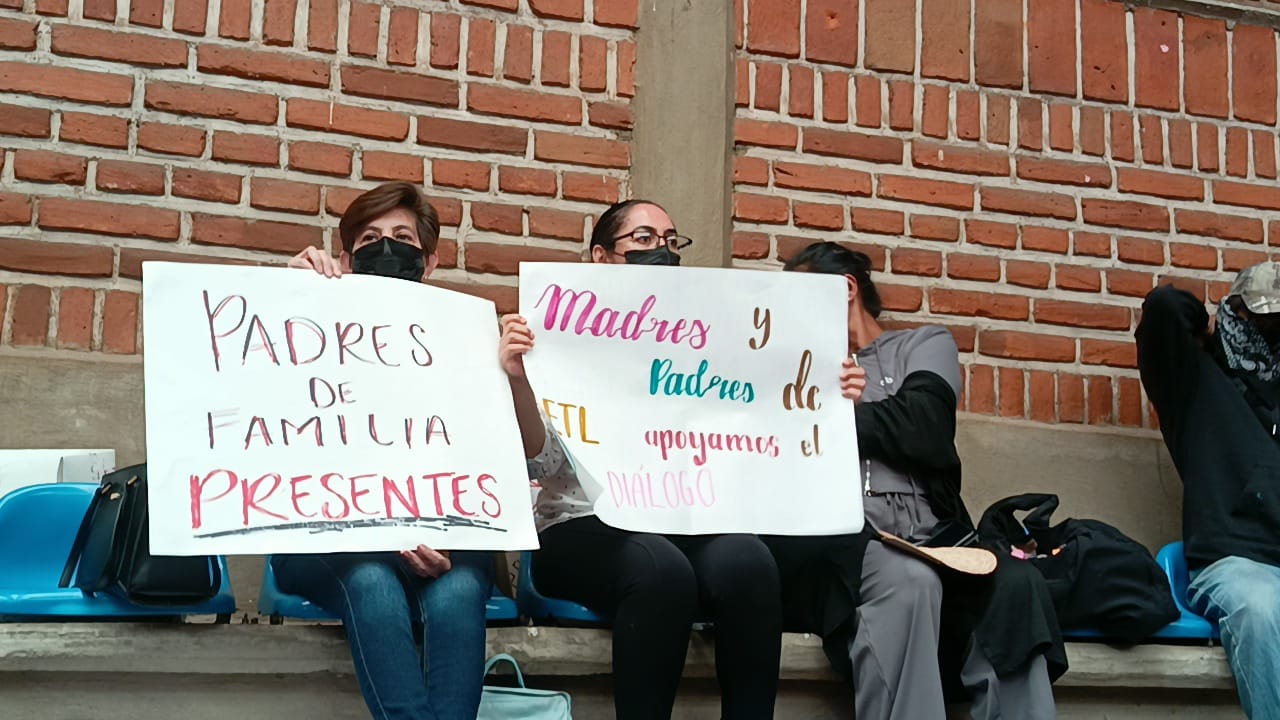 PADRES
DE
FAMILIA
PRESENTES
Madres y
Padres de
ETL apoyamos el
DIÁLOGO